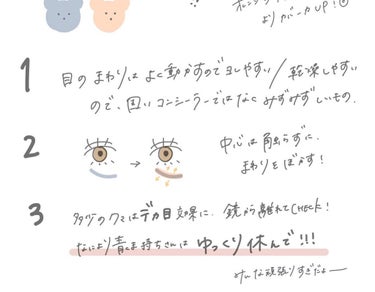 よりカバー力UP!
1
目のまわりはよく動かすのでヨレやすい/乾燥しやすい
ので、固いコンシーラーではなくみずみずしいもの.
2
中心は触らずに、
まわりをぼかす!
3
多少のクマはデカ目効果に. 鏡から離れてCHECK!
なにより青くま持ちさんは ゆっくり休んで!!!
みんな頑張りすぎだよー